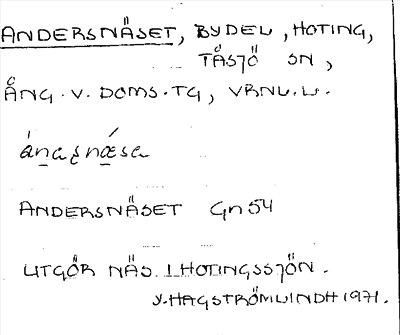 ANDERSNÄSET, BYDEL, HOTING,
TÅSJÖ SN,
ÅNG. V. DOMS. TG, VRNL. L.
ANDERSNÄSET Gn 54
UTGÖR NÄS I HOTINGSSJÖN.
V. HAGSTRÖM LINDH 1971.